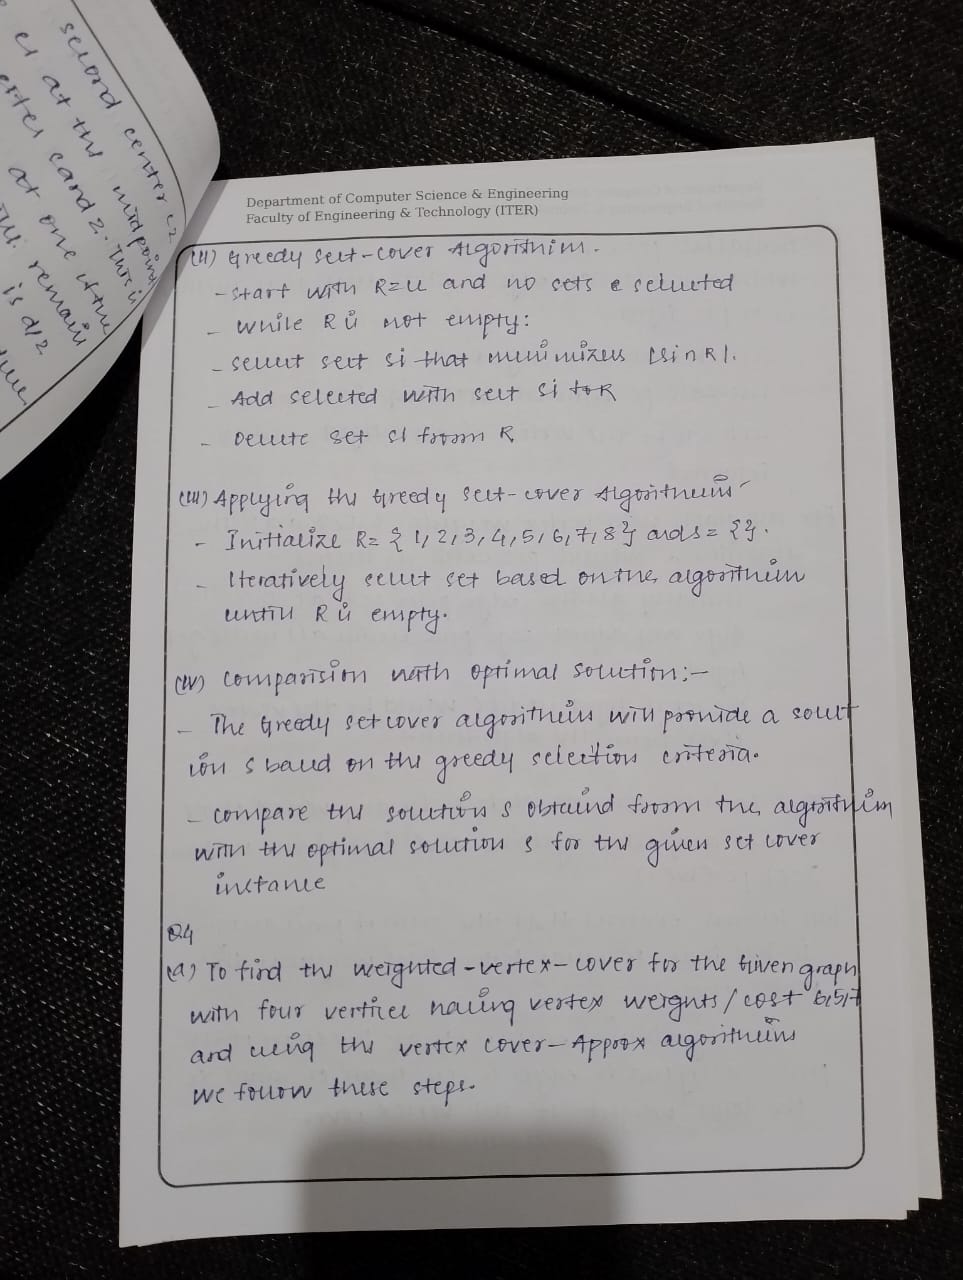 second center c2
c1 at the midpoint
center c1 and 2. This is
at one of the
The remain
is d/2
Department of Computer Science & Engineering
Faculty of Engineering & Technology (ITER)
(ii) Greedy set-cover Algorithim.
- start with R=U and no sets selected
- While R is not empty:
- select set si that minimizes |si n R|.
- Add selected with set si to R
- Delete set si from R
(iii) Applying the Greedy set-cover Algorithm:-
- Initialize R= {1,2,3,4,5,6,7,8} and s = {}.
- Iteratively select set based on the algorithim
untill R is empty.
(iv) comparision with optimal solution:-
- The Greedy set cover algorithim will provide a solut
ion s based on the greedy selection criteria.
- compare the solution s obtaind from the algorithim
with the optimal solution s for the given set cover
instance
Q4
(a) To find the weighted-vertex-cover for the Given graph
with four vertices having vertex weights/cost 6,5,7
and using the vertex cover-Approx algorithim
we follow these steps.